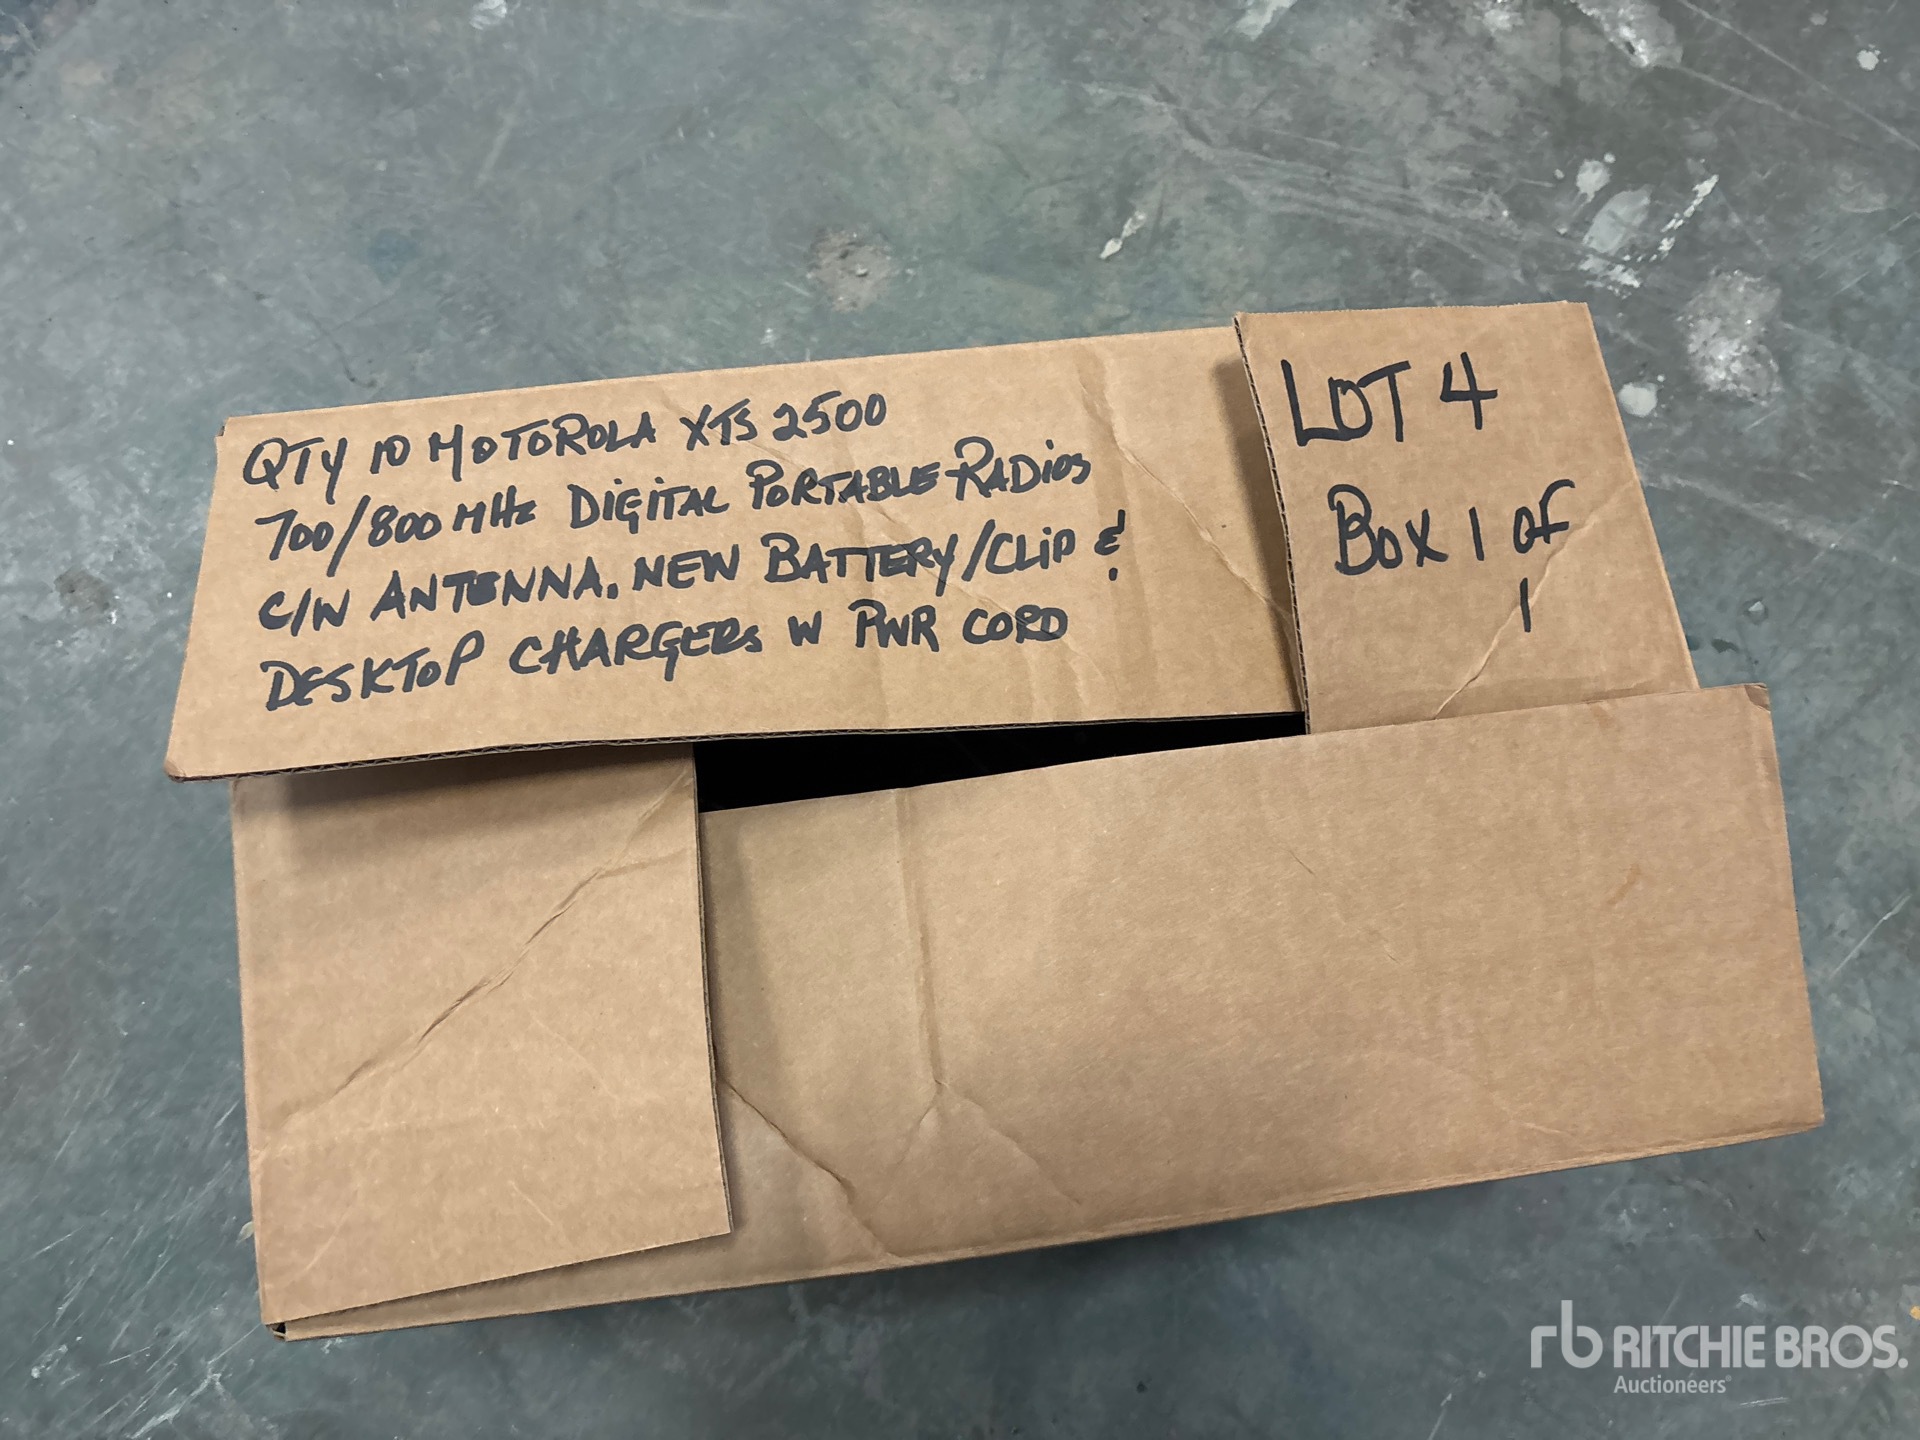 QTY 10 MOTOROLA XTS 2500
700/800 MHz DIGITAL PORTABLE RADIOS
C/W ANTENNA, NEW BATTERY/CLIP &
DESKTOP CHARGERS W PWR CORD
LOT 4
BOX 1 OF
1
rb RITCHIE BROS.
Auctioneers